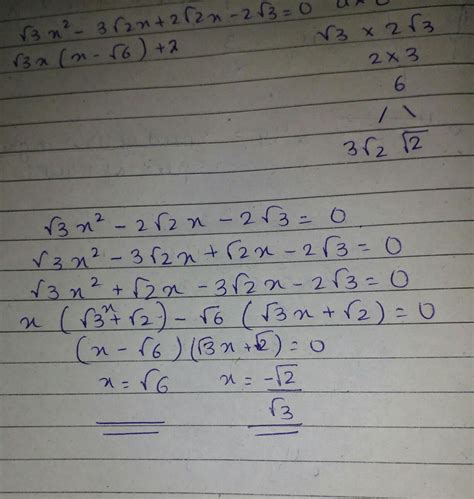 √3x² - 3√2x + 2√2x - 2√3 = 0
√3x (x - √6) + 2
√3 × 2√3
2 × 3
6
/ \
3√2 √2
√3x² - 2√2x - 2√3 = 0
√3x² - 3√2x + √2x - 2√3 = 0
√3x² + √2x - 3√2x - 2√3 = 0
x (√3x + √2) - √6 (√3x + √2) = 0
(x - √6) (√3x + √2) = 0
x = √6 x = -√2/√3